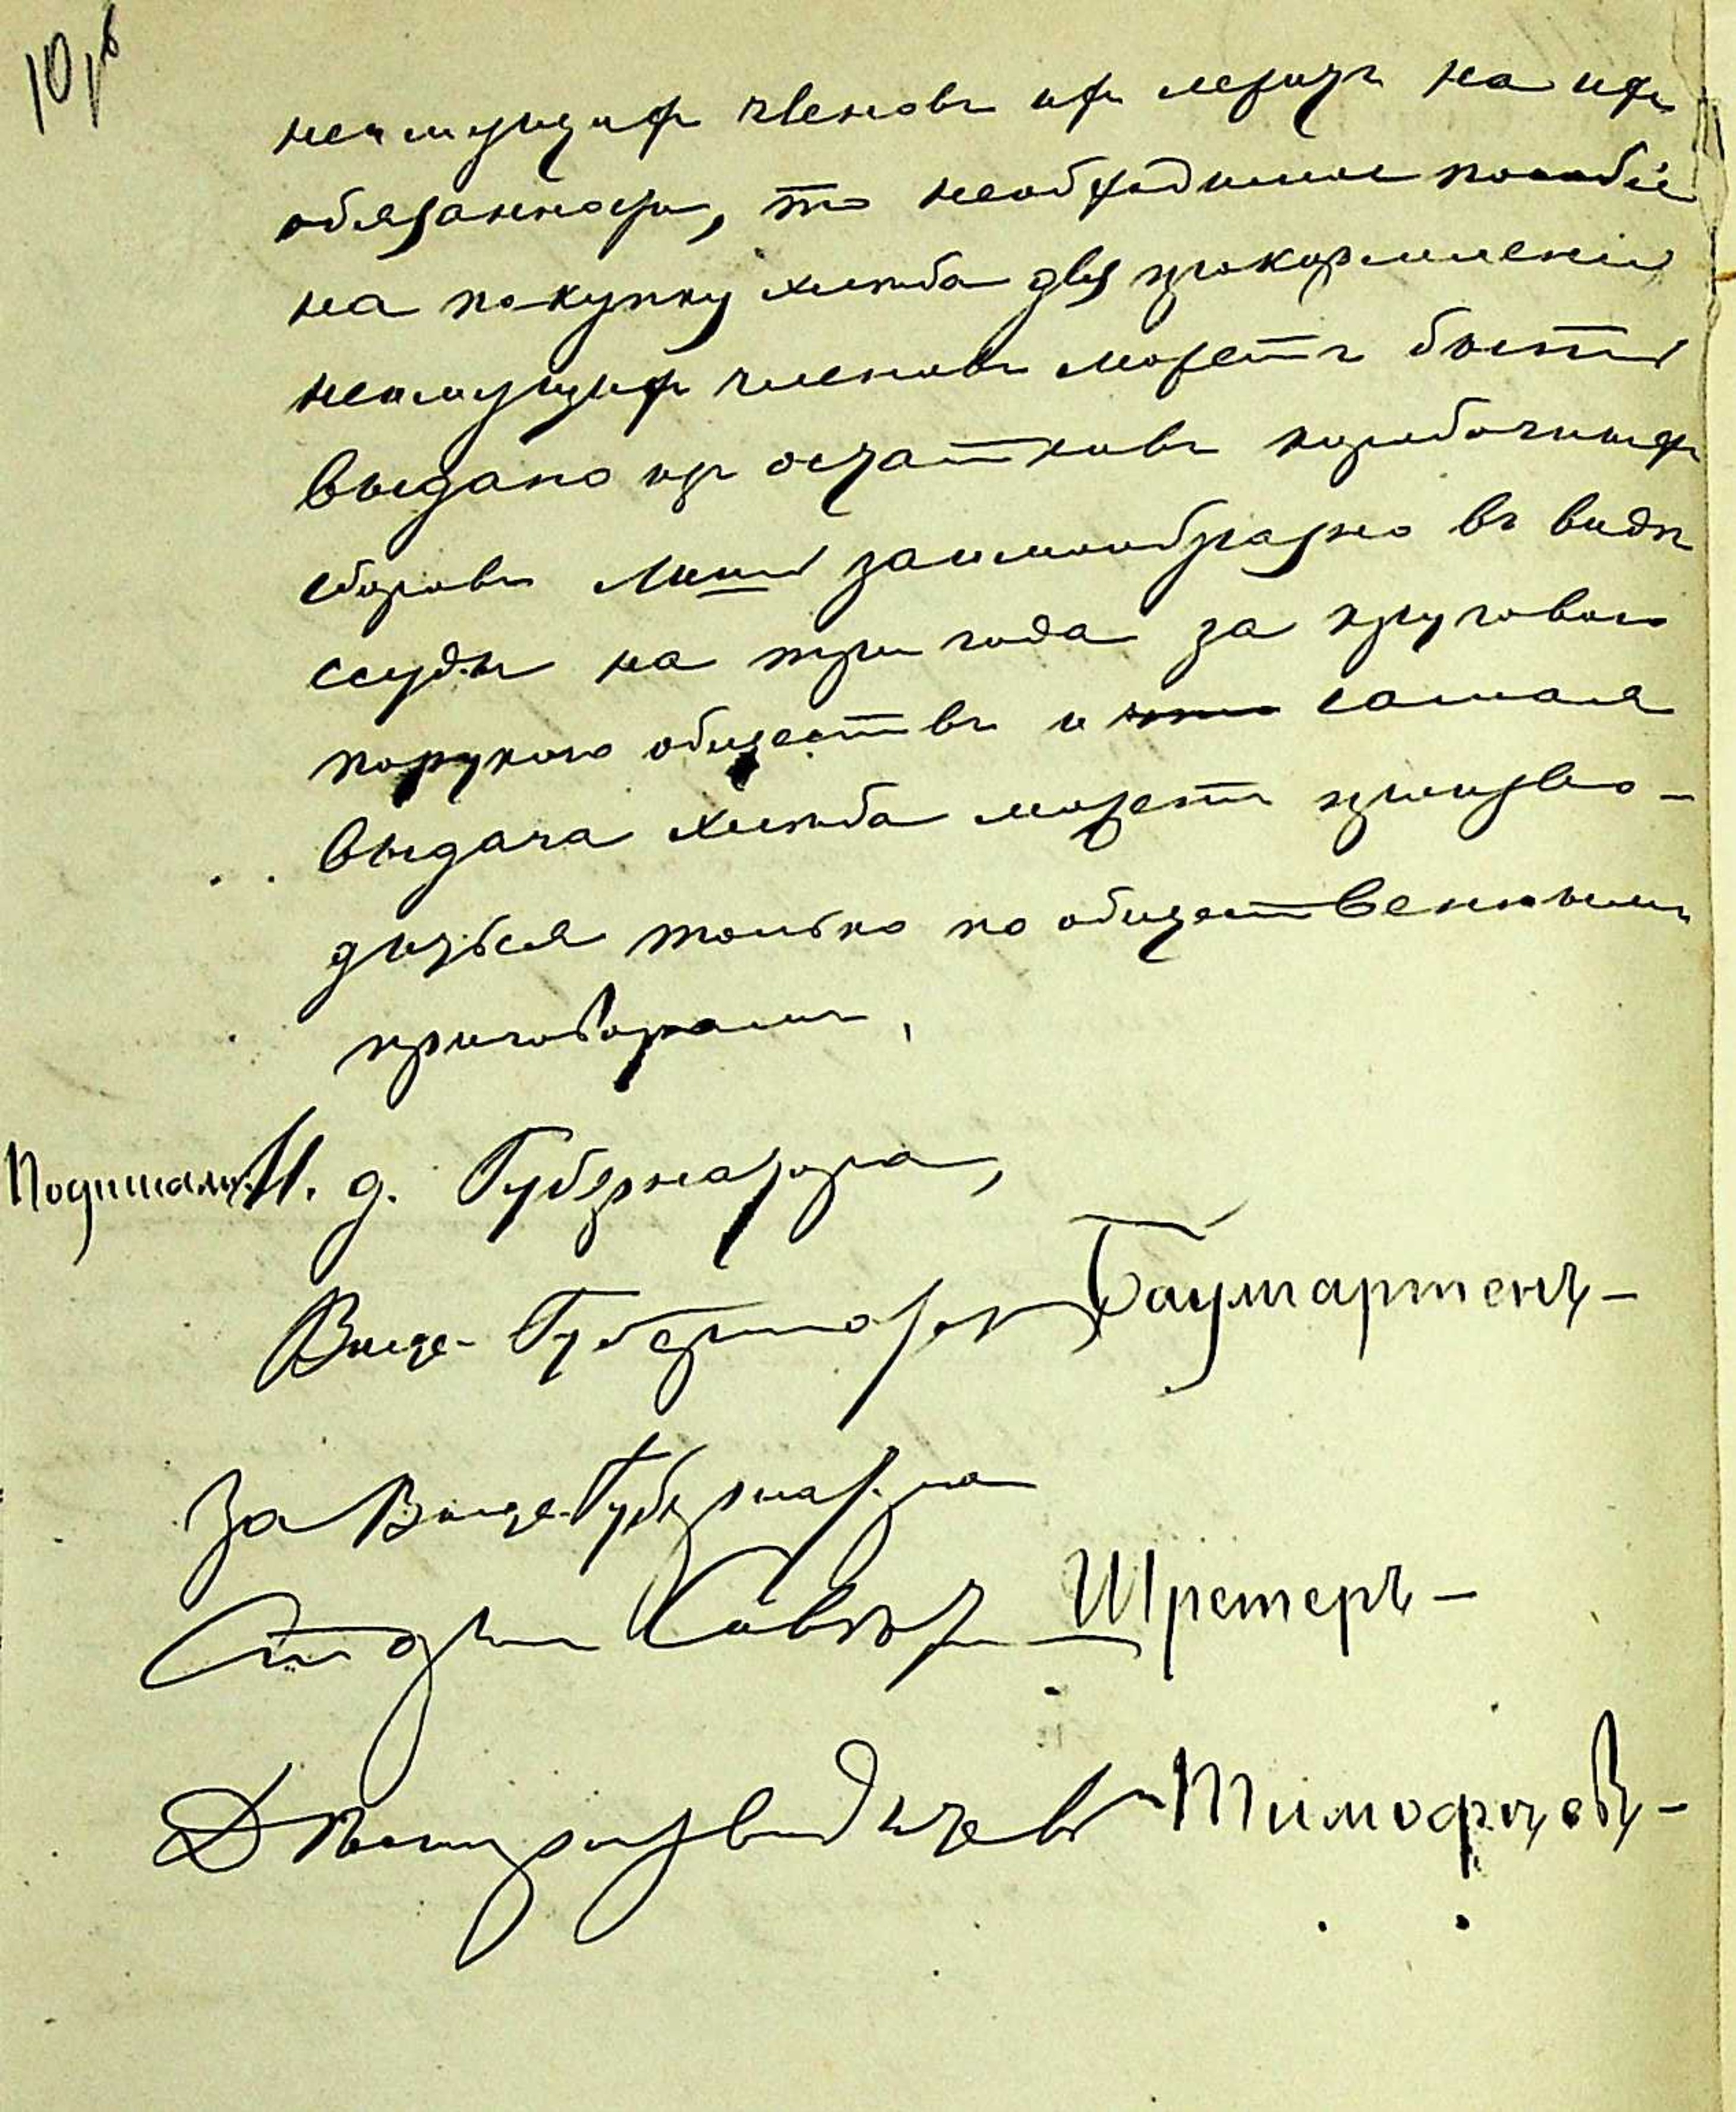 неимущихъ членовъ ихъ лежитъ на ихъ
обязанности, то необходимое пособіе
на покупку хлѣба для прокормленія
неимущихъ членовъ можетъ быть
выдано изъ остатковъ коробочныхъ
сборовъ лишь заимообразно въ видѣ
ссуды на три года за круговою
порукою обществъ и самая
выдача хлѣба можетъ произво-
диться только по общественнымъ
приговорамъ.
Подписали: И. д. Губернатора,
Вице-Губернаторъ Баумгартенъ-
За Вице-Губернатора
Старшій Совѣтн. Шретеръ-
Дѣлопроизводитель Тимофѣевъ-